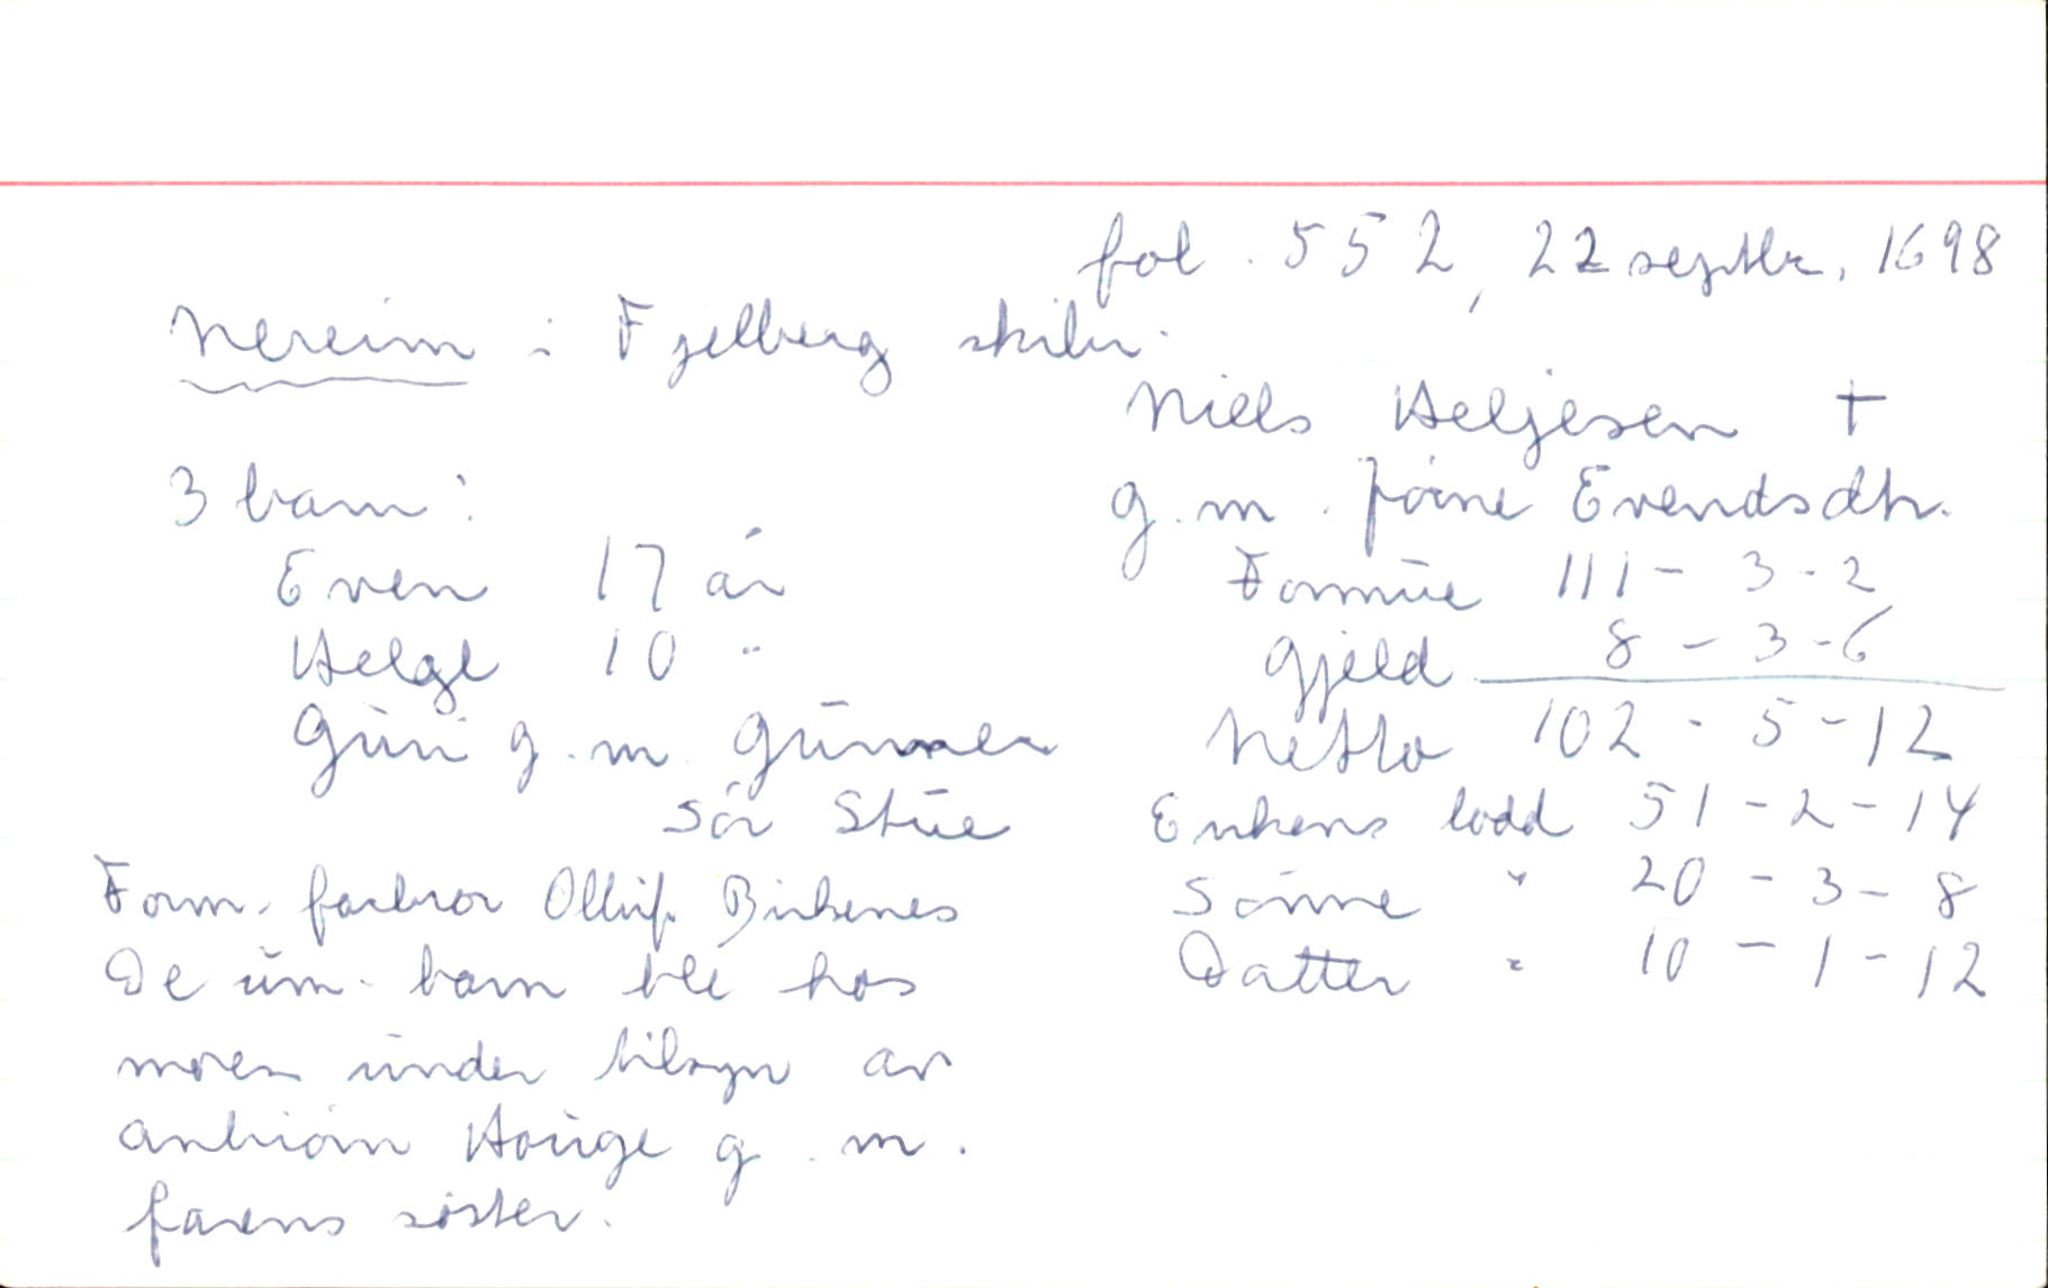 fol. 552, 22 septbr. 1698
Nereim i Fjelberg skibr.
Niels Heljesen †
g.m. Jórne Evendsdtr.
3 barn:
Even 17 år
Helge 10 "
Guri g.m. Gunner
Sör Stue
Form. farbror Olluf Birkenes
De um. barn ble hos
moren under tilsyn av
Anbiörn Houge g.m.
farens söster.
Formue 111 - 3 - 2
Gjeld 8 - 3 - 6
Netto 102 - 5 - 12
Enkens lodd 51 - 2 - 14
Sönne " 20 - 3 - 8
Datter " 10 - 1 - 12